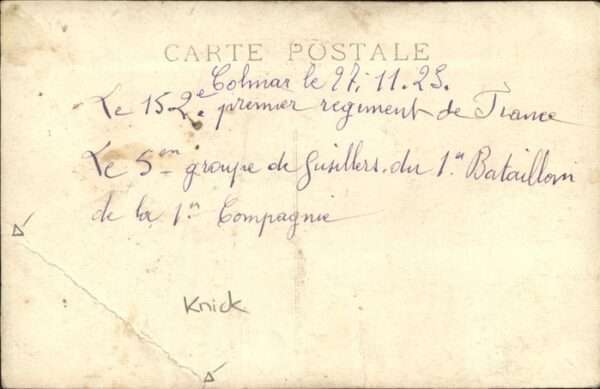 CARTE POSTALE
Colmar le 27.11.25.
Le 152e premier regiment de France
Le 5em groupe de fusillers du 1er Bataillom
de la 1re Compagnie
Knick